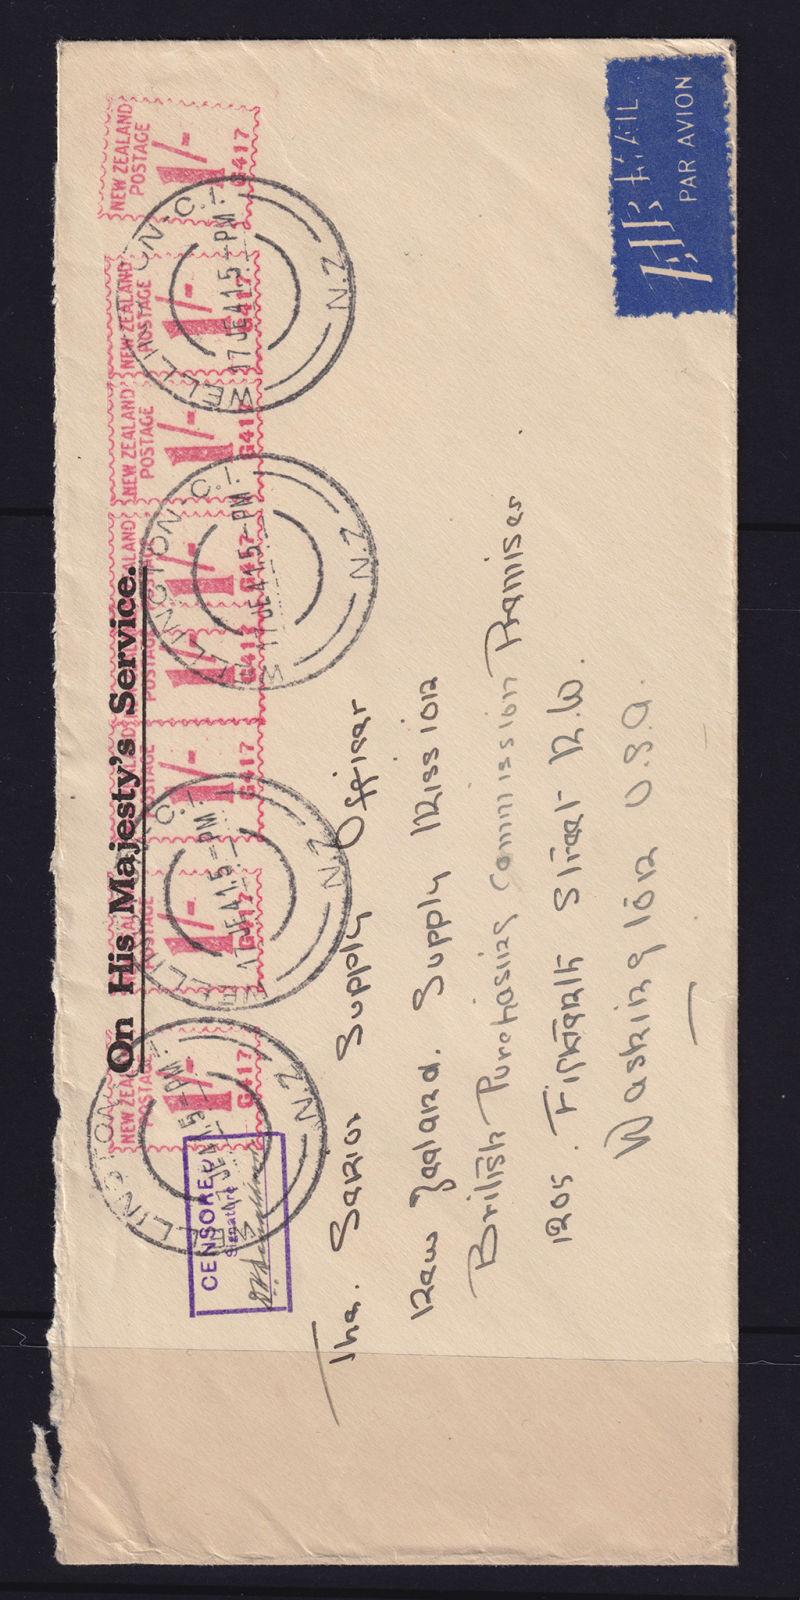 On His Majesty's Service.
NEW ZEALAND POSTAGE 1/- G417
NEW ZEALAND POSTAGE 1/- G417
NEW ZEALAND POSTAGE 1/- G417
ALAND 1/- G417
POSTAGE 1/- G417
POSTAGE 1/- G417
POSTAGE 1/- G417
NEW ZEA POSTAGE 1/- G417
WELLINGTON. C.1. N.Z
17 JE 41.5-PM
WELLINGTON. C.1. N.Z
17 JE 41.5-PM
WELLINGTON C.1. N.Z
17 JE 41.5-PM
WELLINGTON N.Z
17 JE 41.5-PM
AIR MAIL
PAR AVION
CENSORED
Signature
The. Senior Supply Officer
New Zealand. Supply Mission
British Purchasing Commission Premises
1205. Fifteenth Street N.W.
Washington U.S.A.